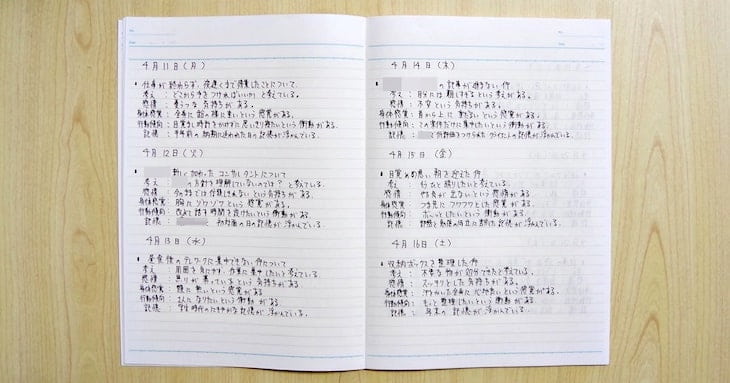 4月11日（月）
仕事が終わらず、夜遅くまで残業したことについて
考え：どこから手をつければいいか と考えている。
感情：憂うつな気持ちがある。
身体感覚：全身に鉛の様に重いという感覚がある。
行動傾向：目覚まし時計をかけずに思いきり寝たいという衝動がある。
記憶：半年前の納期に追われた日の記憶が浮かんでいる。
4月12日（火）
新しく加わったコンサルタントについて
考え：の方針を理解していないのでは？と考えている。
感情：今のままでは信頼しきれないという気持ちがある。
身体感覚：胸にソワソワという感覚がある。
行動傾向：改めて話す時間を設けたいという衝動がある。
記憶：と初対面の日の記憶が浮かんでいる。
4月13日（水）
昼食後のテレワークに集中できない件について
考え：周囲を気にせず、作業に集中したいと考えている。
感情：焦りが募っているという気持ちがある。
身体感覚：頭に熱いという感覚がある。
行動傾向：1人になりたいという衝動がある。
記憶：学生時代のにぎやかな記憶が浮かんでいる。
4月14日（木）
の記事が進まない件
考え：自分には難しすぎるという考えがある。
感情：不安という気持ちがある。
身体感覚：首から上に重だるいという感覚がある。
行動傾向：この案件だけに集中したいという衝動がある。
記憶：で低評価をつけられたクライアントの記憶が浮かんでいる。
4月15日（金）
目覚めの悪い朝を迎えた件
考え：もっと眠りたいと考えている。
感情：やる気が出ないという感情がある。
身体感覚：つま先にフワフワとした感覚がある。
行動傾向：ボーッとしたいという衝動がある。
記憶：
4月16日（土）
収納ボックスを整理した件
考え：不要な物が処分できたと考えている。
感情：スッキリとした気持ちがある。
身体感覚：汗をかいた全身に心地よいという感覚がある。
行動傾向：もっと整理したいという衝動がある。
記憶：年末の記憶が浮かんでいる。